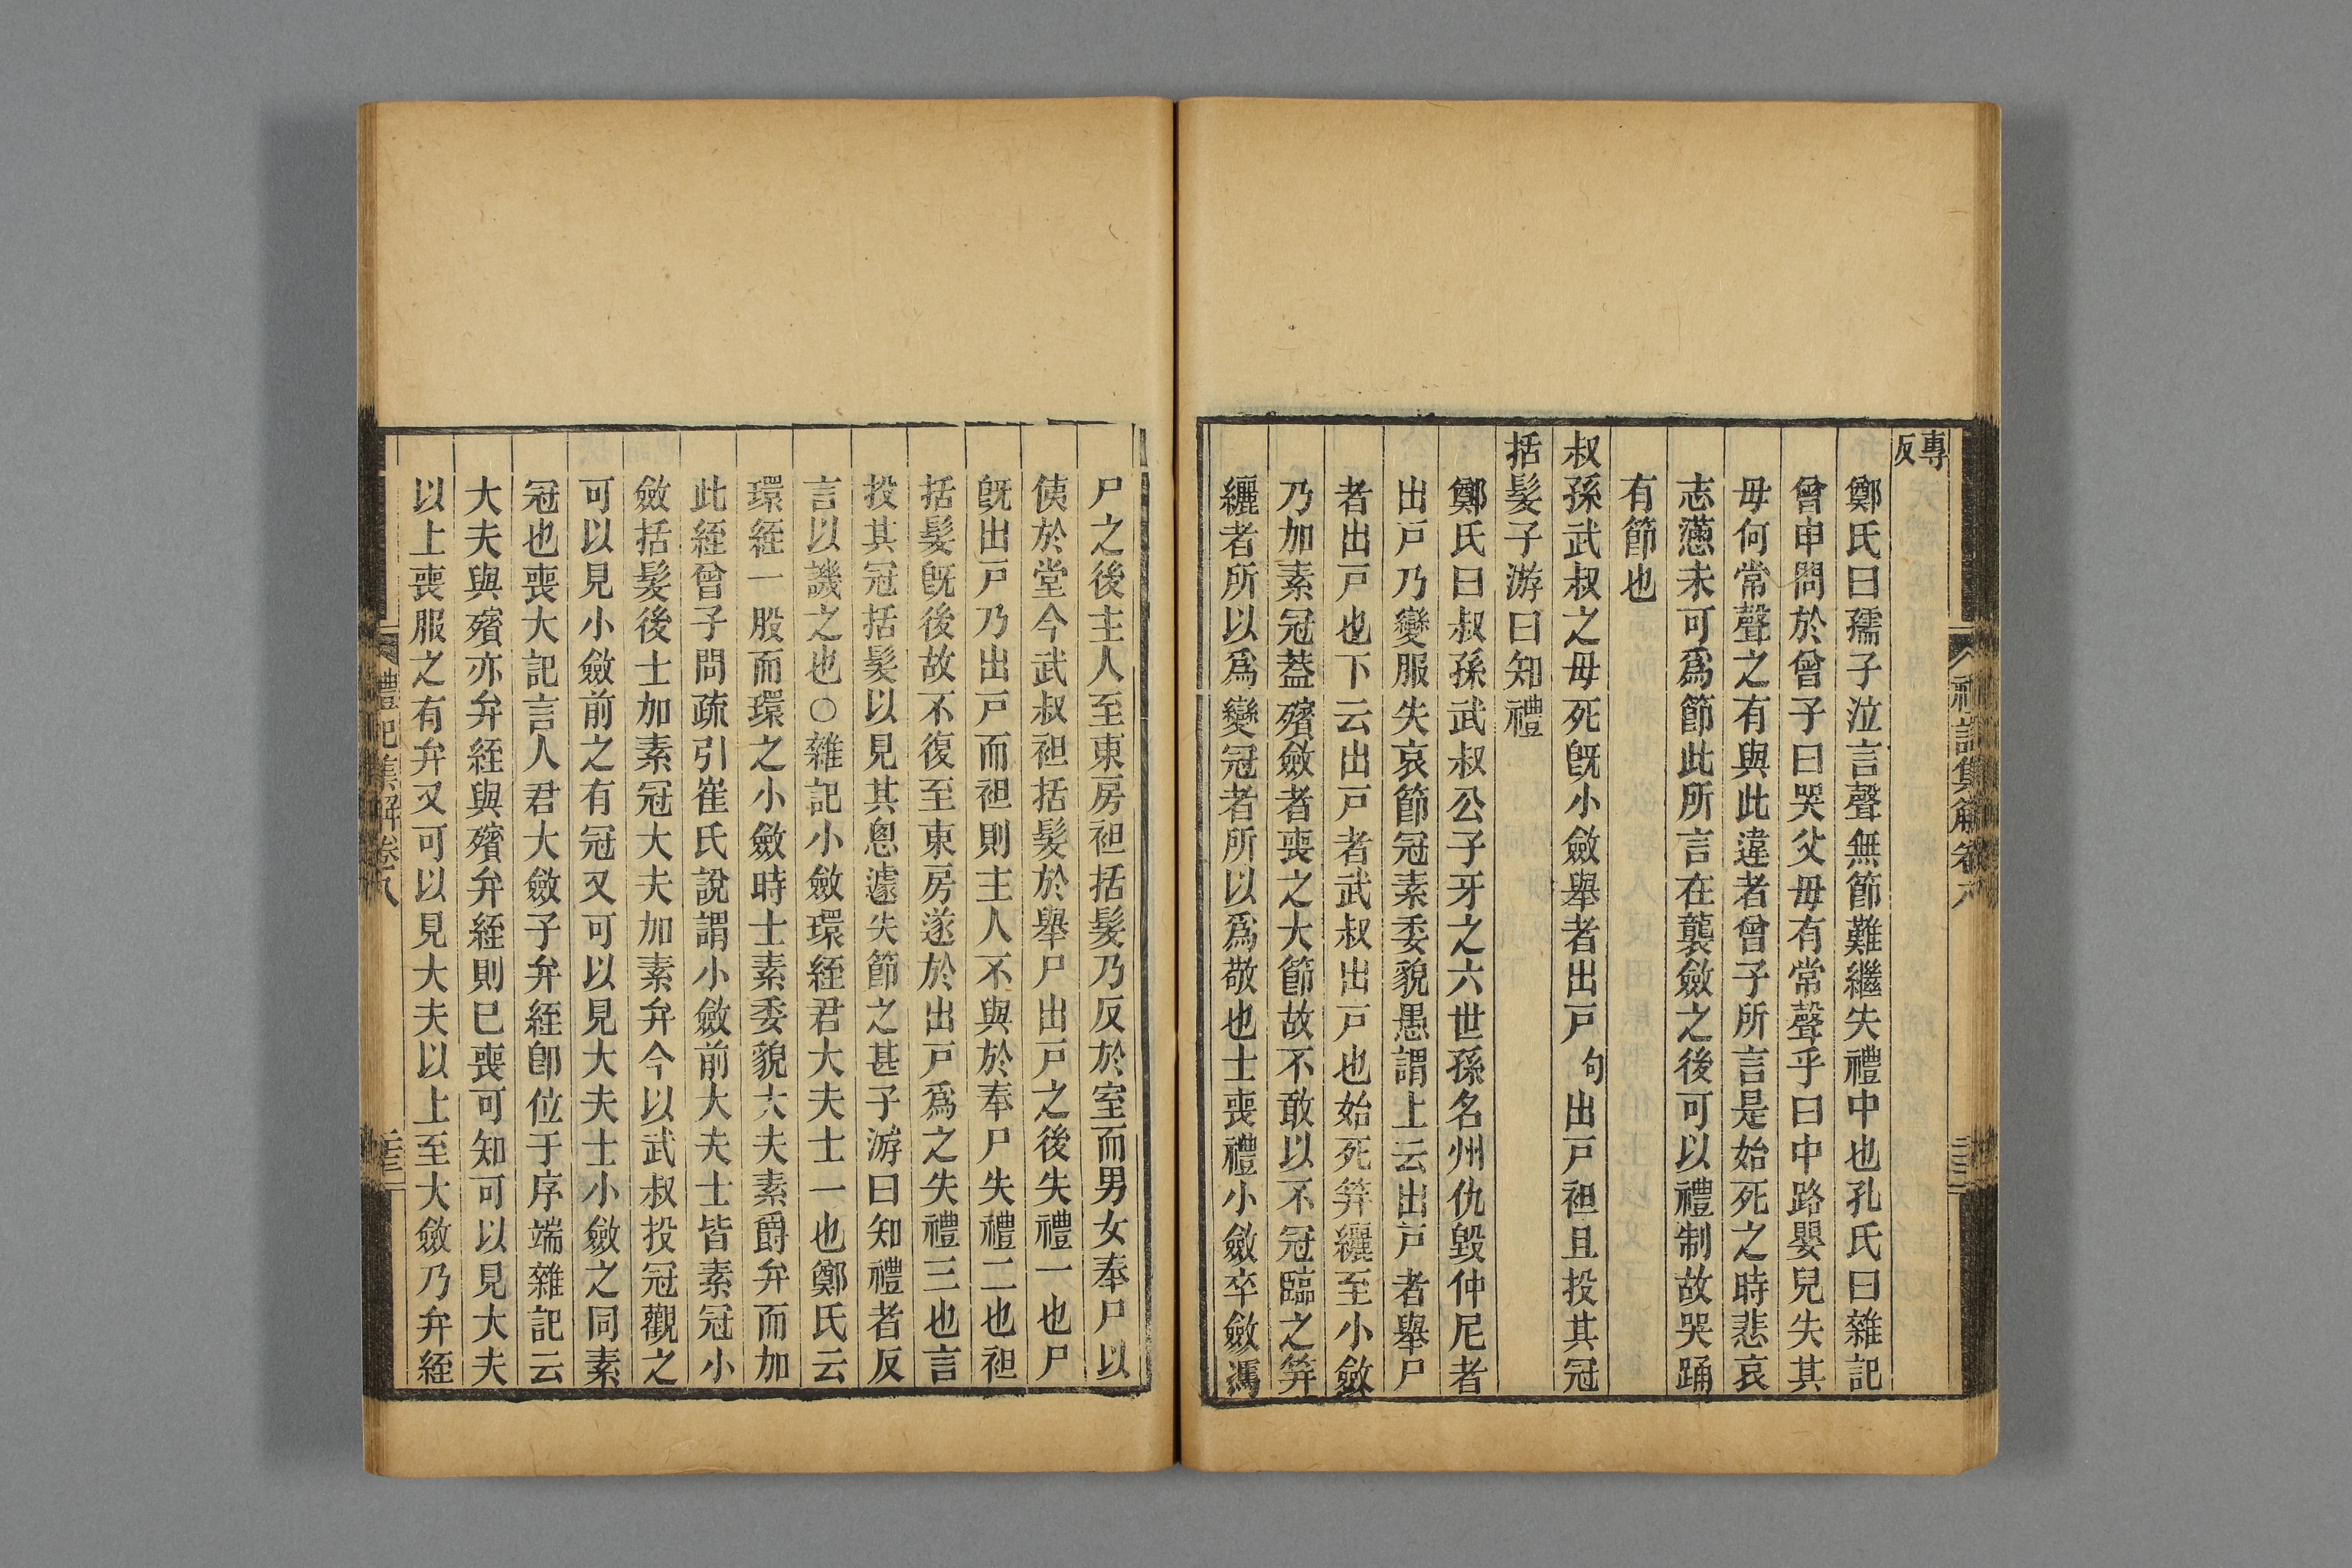 專反
鄭氏曰孺子泣言聲無節難繼失禮中也孔氏曰雜記
曾申問於曾子曰哭父毋有常聲乎曰中路嬰兒失其
毋何常聲之有與此違者曾子所言是始死之時悲哀
志懣未可爲節此所言在襲斂之後可以禮制故哭踊
有節也
叔孫武叔之毋死旣小斂舉者出戸句出戸袒且投其冠
括髮子游曰知禮
鄭氏曰叔孫武叔公子牙之六世孫名州仇毀仲尼者
出戸乃變服失哀節冠素委貌愚謂上云出戸者舉尸
者出戸也下云出戸者武叔出戸也始死筓纚至小斂
乃加素冠葢殯斂者喪之大節故不敢以不冠臨之筓
纚者所以爲變冠者所以爲敬也士喪禮小斂卒斂馮
尸之後主人至東房袒括髮乃反於室而男女奉尸以
侇於堂今武叔袒括髮於舉尸出戸之後失禮一也尸
旣出戸乃出戸而袒則主人不與於奉尸失禮二也袒
括髮旣後故不復至東房遂於出戸爲之失禮三也言
投其冠括髮以見其悤遽失節之甚子游曰知禮者反
言以譏之也○雜記小斂環絰君大夫士一也鄭氏云
環絰一股而環之小斂時士素委貌大夫素爵弁而加
此絰曾子問疏引崔氏說謂小斂前大夫士皆素冠小
斂括髮後士加素冠大夫加素弁今以武叔投冠觀之
可以見小斂前之有冠又可以見大夫士小斂之同素
冠也喪大記言人君大斂子弁絰卽位于序端雜記云
大夫與殯亦弁絰與殯弁絰則已喪可知可以見大夫
以上喪服之有弁又可以見大夫以上至大斂乃弁絰
禮記集解卷八